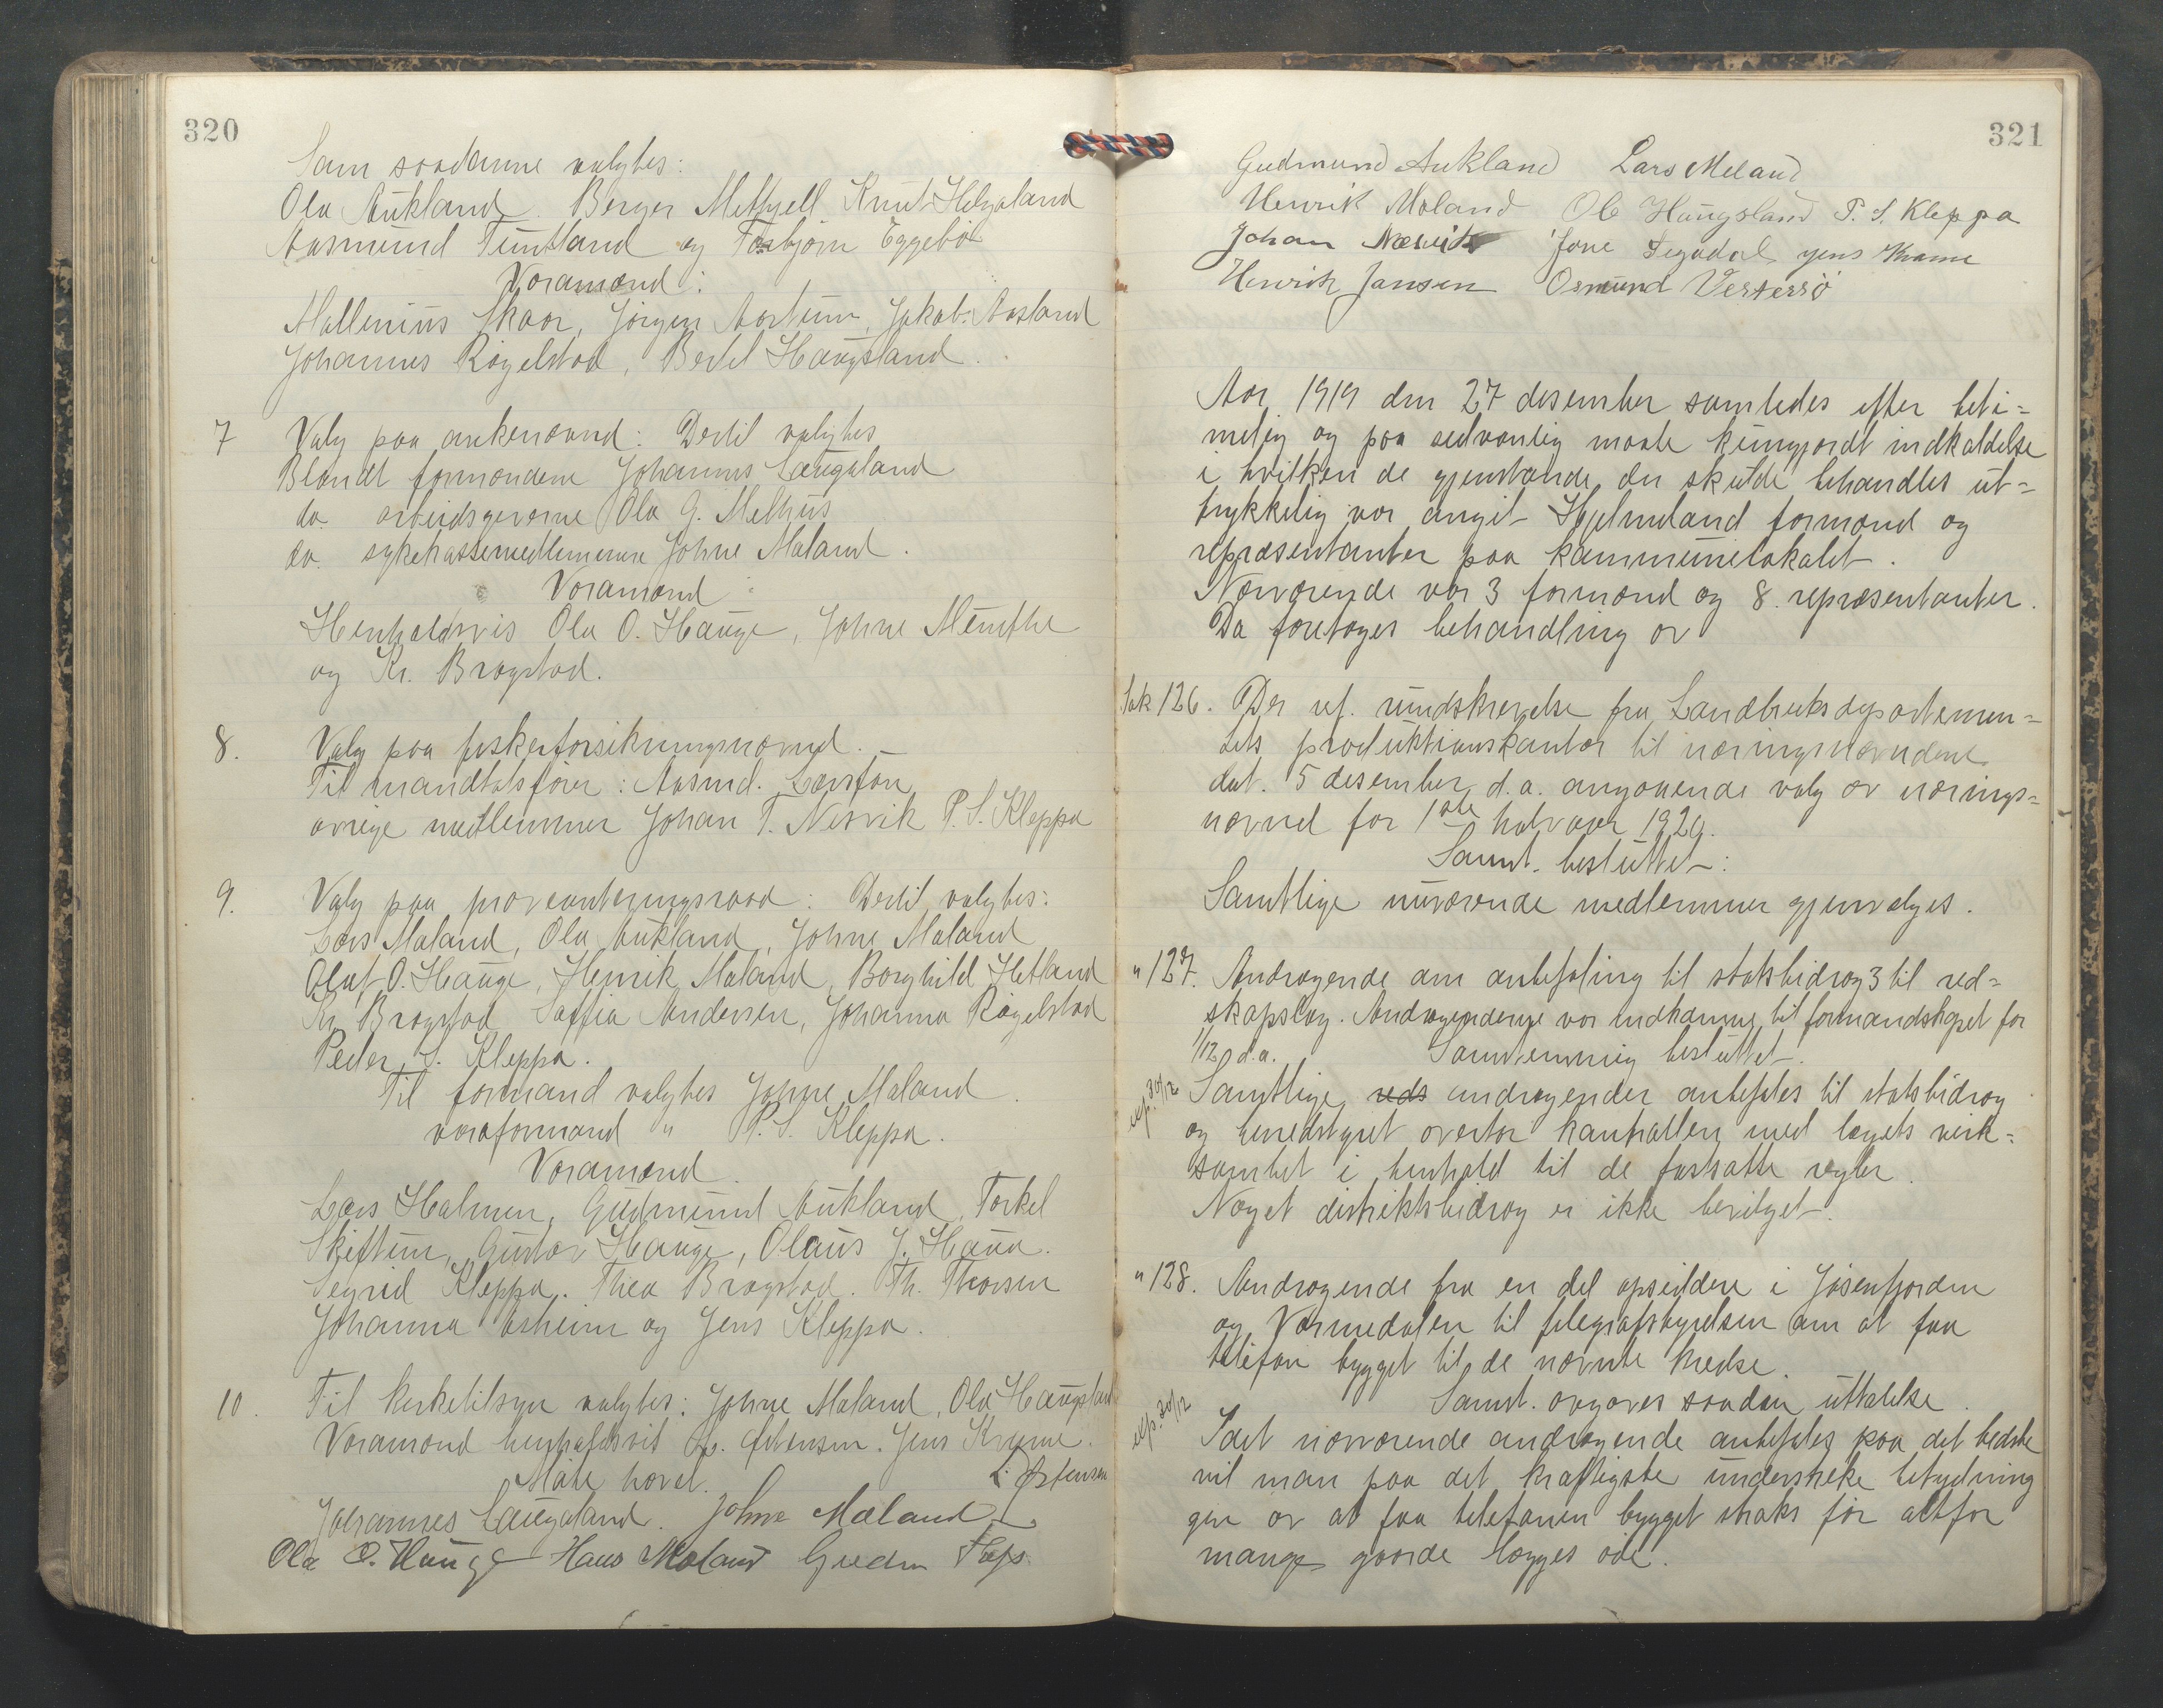 320
Som saadanne valgtes:
Ola Aukland. Berger Methjell Knut Helgaland
Aasmund Tuntland og Torbjørn Eggebø
Varamænd:
Mallenius Skaar, Jørgen Aartun, Jakob Aasland
Johannes Rigelstad, Bertil Haugsland.
7 Valg paa ankenævnd: Dertil valgtes
Blandt formændene Johannes Laugaland
do. arbeidsgiverne Ola G. Melhus
do. sykekassemedlemmene Johne Mæland.
Varamænd
Henholdsvis Ola O. Hauge, Johne
og Kr. Bragstad.
8. Valg paa fiskerforsikringsnævnd. –
Til mandtalsfører: Aasmd. Lavsfon
øvrige medlemmer Johan T. Nesvik P. S. Kleppa
9. Valg paa provianteringsraad: Dertil valgtes:
Lars Mæland, Ola Aukland, Johne Mæland
Olaf O. Hauge, Henrik Mæland, Borghild Hetland
Kr. Bragstad, Soffia Andersen, Johanna Rigelstad
Peder S. Kleppa.
Til formand valgtes Johne Mæland.
varaformand " P. S. Kleppa.
Varamænd.
Lars Halmen, Gudmund Aukland, Torkel
Skiftun, Gustav Hauge, Olaus J. Hauga.
Segrid Kleppa. Thea Bragstad. Th. Thorsen
Johanna Asheim og Jens Kleppa.
10. Til kirketilsyn valgtes: Johne Mæland, Ola Haugsland
Varamænd henholdsvis L. Østensen. Jens Krame.
Møte hævet.
L. Østensen
Johannes Laugaland. Johne Mæland
Ola O. Hauge Hans Mæland Gudm
321
Gudmund Aukland Lars Meland
Henrik Mæland Ole Haugsland P. S. Kleppa
Johan Næsvik Jone Segadal Jens Krame
Henrik Jansen Osmund Vestersjø
Aar 1919 den 27 desember samledes efter beti=
melig og paa sedvanlig maate kungjordt indkaldelse
i hvilken de gjenstande, der skulde behandles ut=
trykkelig var angit Hjelmeland formænd og
repræsentanter paa kommunelokalet.
Nærværende var 3 formænd og 8 repræsentanter.
Da foretages behandling av
Sak 126. Der ref. rundskrivelse fra Landbruksdepartemen=
tets produktionskontor til næringsnævndene
dat. 5 desember d.a. angaaende valg av nærings=
nævnd for 1ste halvaar 1920.
Samt. besluttet:
Samtlige nuværende medlemmer gjenvælges.
" 127. Andragende om anbefaling til statsbidrag 3 til red=
skapslag. Andragendene var indkomne til formandskapet før
1/12 d.a. Samstemmig besluttet.
exp. 30/12 Samtlige reds andragender anbefales til statsbidrag
og herredstyret overtar kontrollen med lagets virk=
somhet i henhold til de fastsatte regler.
Noget distriktsbidrag er ikke bevilget.
" 128. Andragende fra en del opsiddere i Jøsenfjorden
og Vormedalen til telegrafstyrelsen om at faa
telefon bygget til de nævnte kredse.
Samt. avgaves saadan uttalelse.
exp. 30/12 Idet nærværende andragende anbefales paa det bedste
vil man paa det kraftigste understreke betydnin
gen av at faa telefonen bygget straks før altfor
mange gaarde lægges øde.